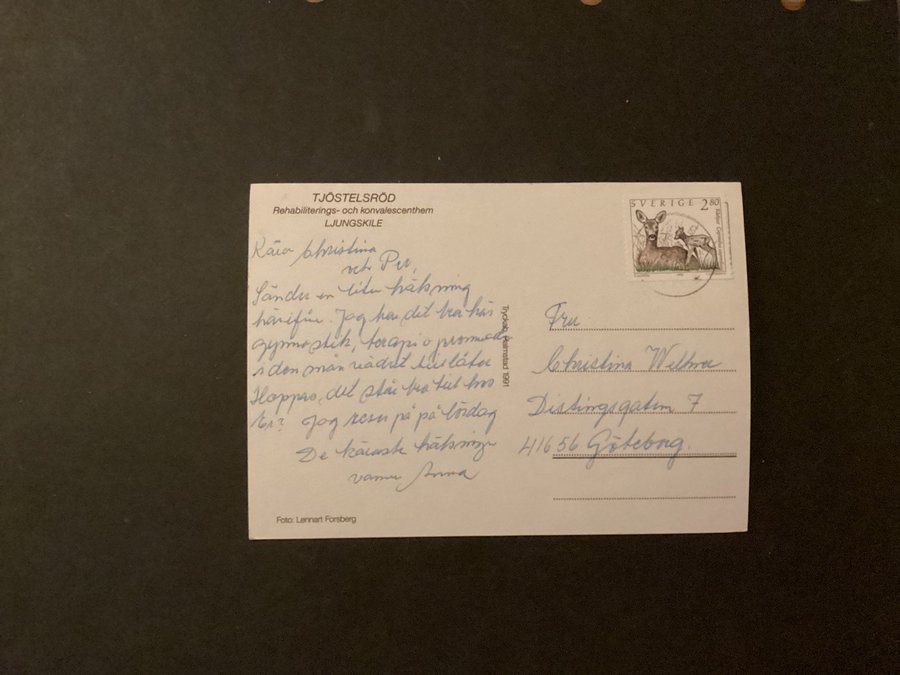 TJÖSTELSRÖD
Rehabiliterings- och konvalescenthem
LJUNGSKILE
Kära Christina
och Per,
Sänder en liten hälsning
härifrån. Jag har det bra här
gymnastik, terapi o promenad
i den mån vädret tillåter
Hoppas, det står bra till hos
Er? Jag reser på på lördag
De käraste hälsningar
Anna
Foto: Lennart Forsberg
Tryckab, Halmstad 1991
SVERIGE 2 80
Fru
Christina
Distingsgatan 7
41656 Göteborg.